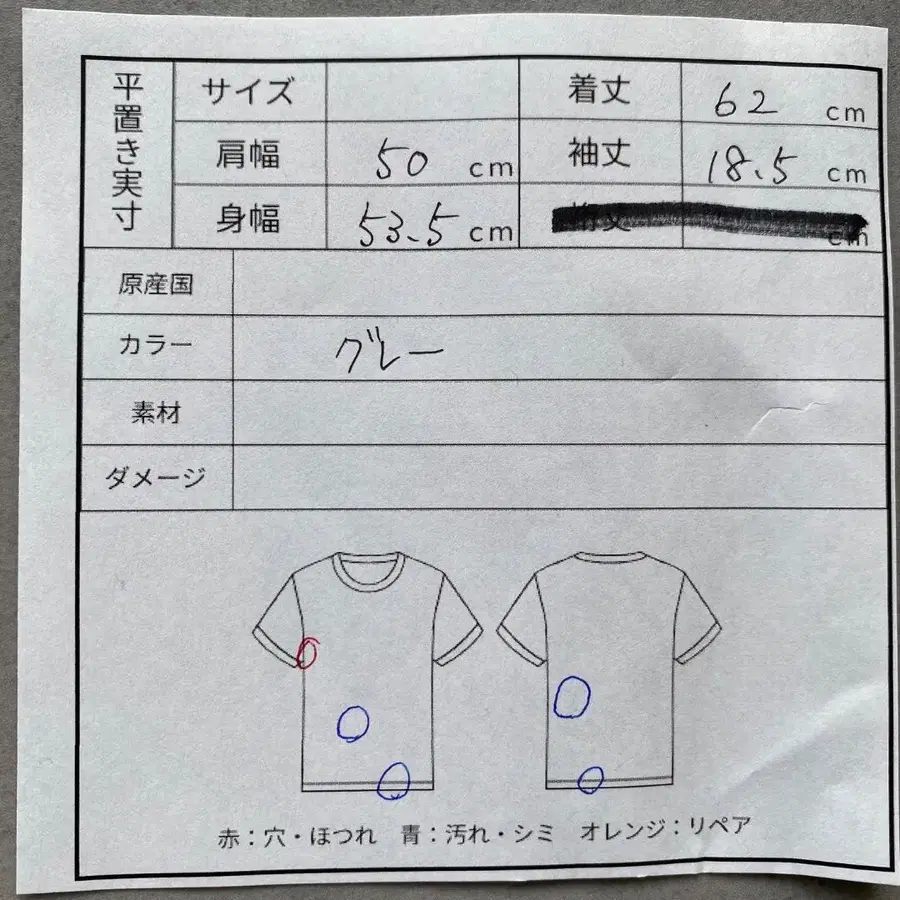 平置き実寸
サイズ
着丈 62 cm
肩幅 50 cm
袖丈 18.5 cm
身幅 53.5 cm
cm
原産国
カラー グレー
素材
ダメージ
赤：穴・ほつれ 青：汚れ・シミ オレンジ：リペア